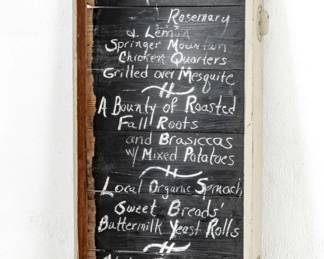 Rosemary
& Lemon
Springer Mountain
Chicken Quarters
Grilled over Mesquite
A Bounty of Roasted
Fall Roots
and Brasiccas
w/ Mixed Potatoes
Local Organic Spinach
Sweet Breads'
Buttermilk Yeast Rolls